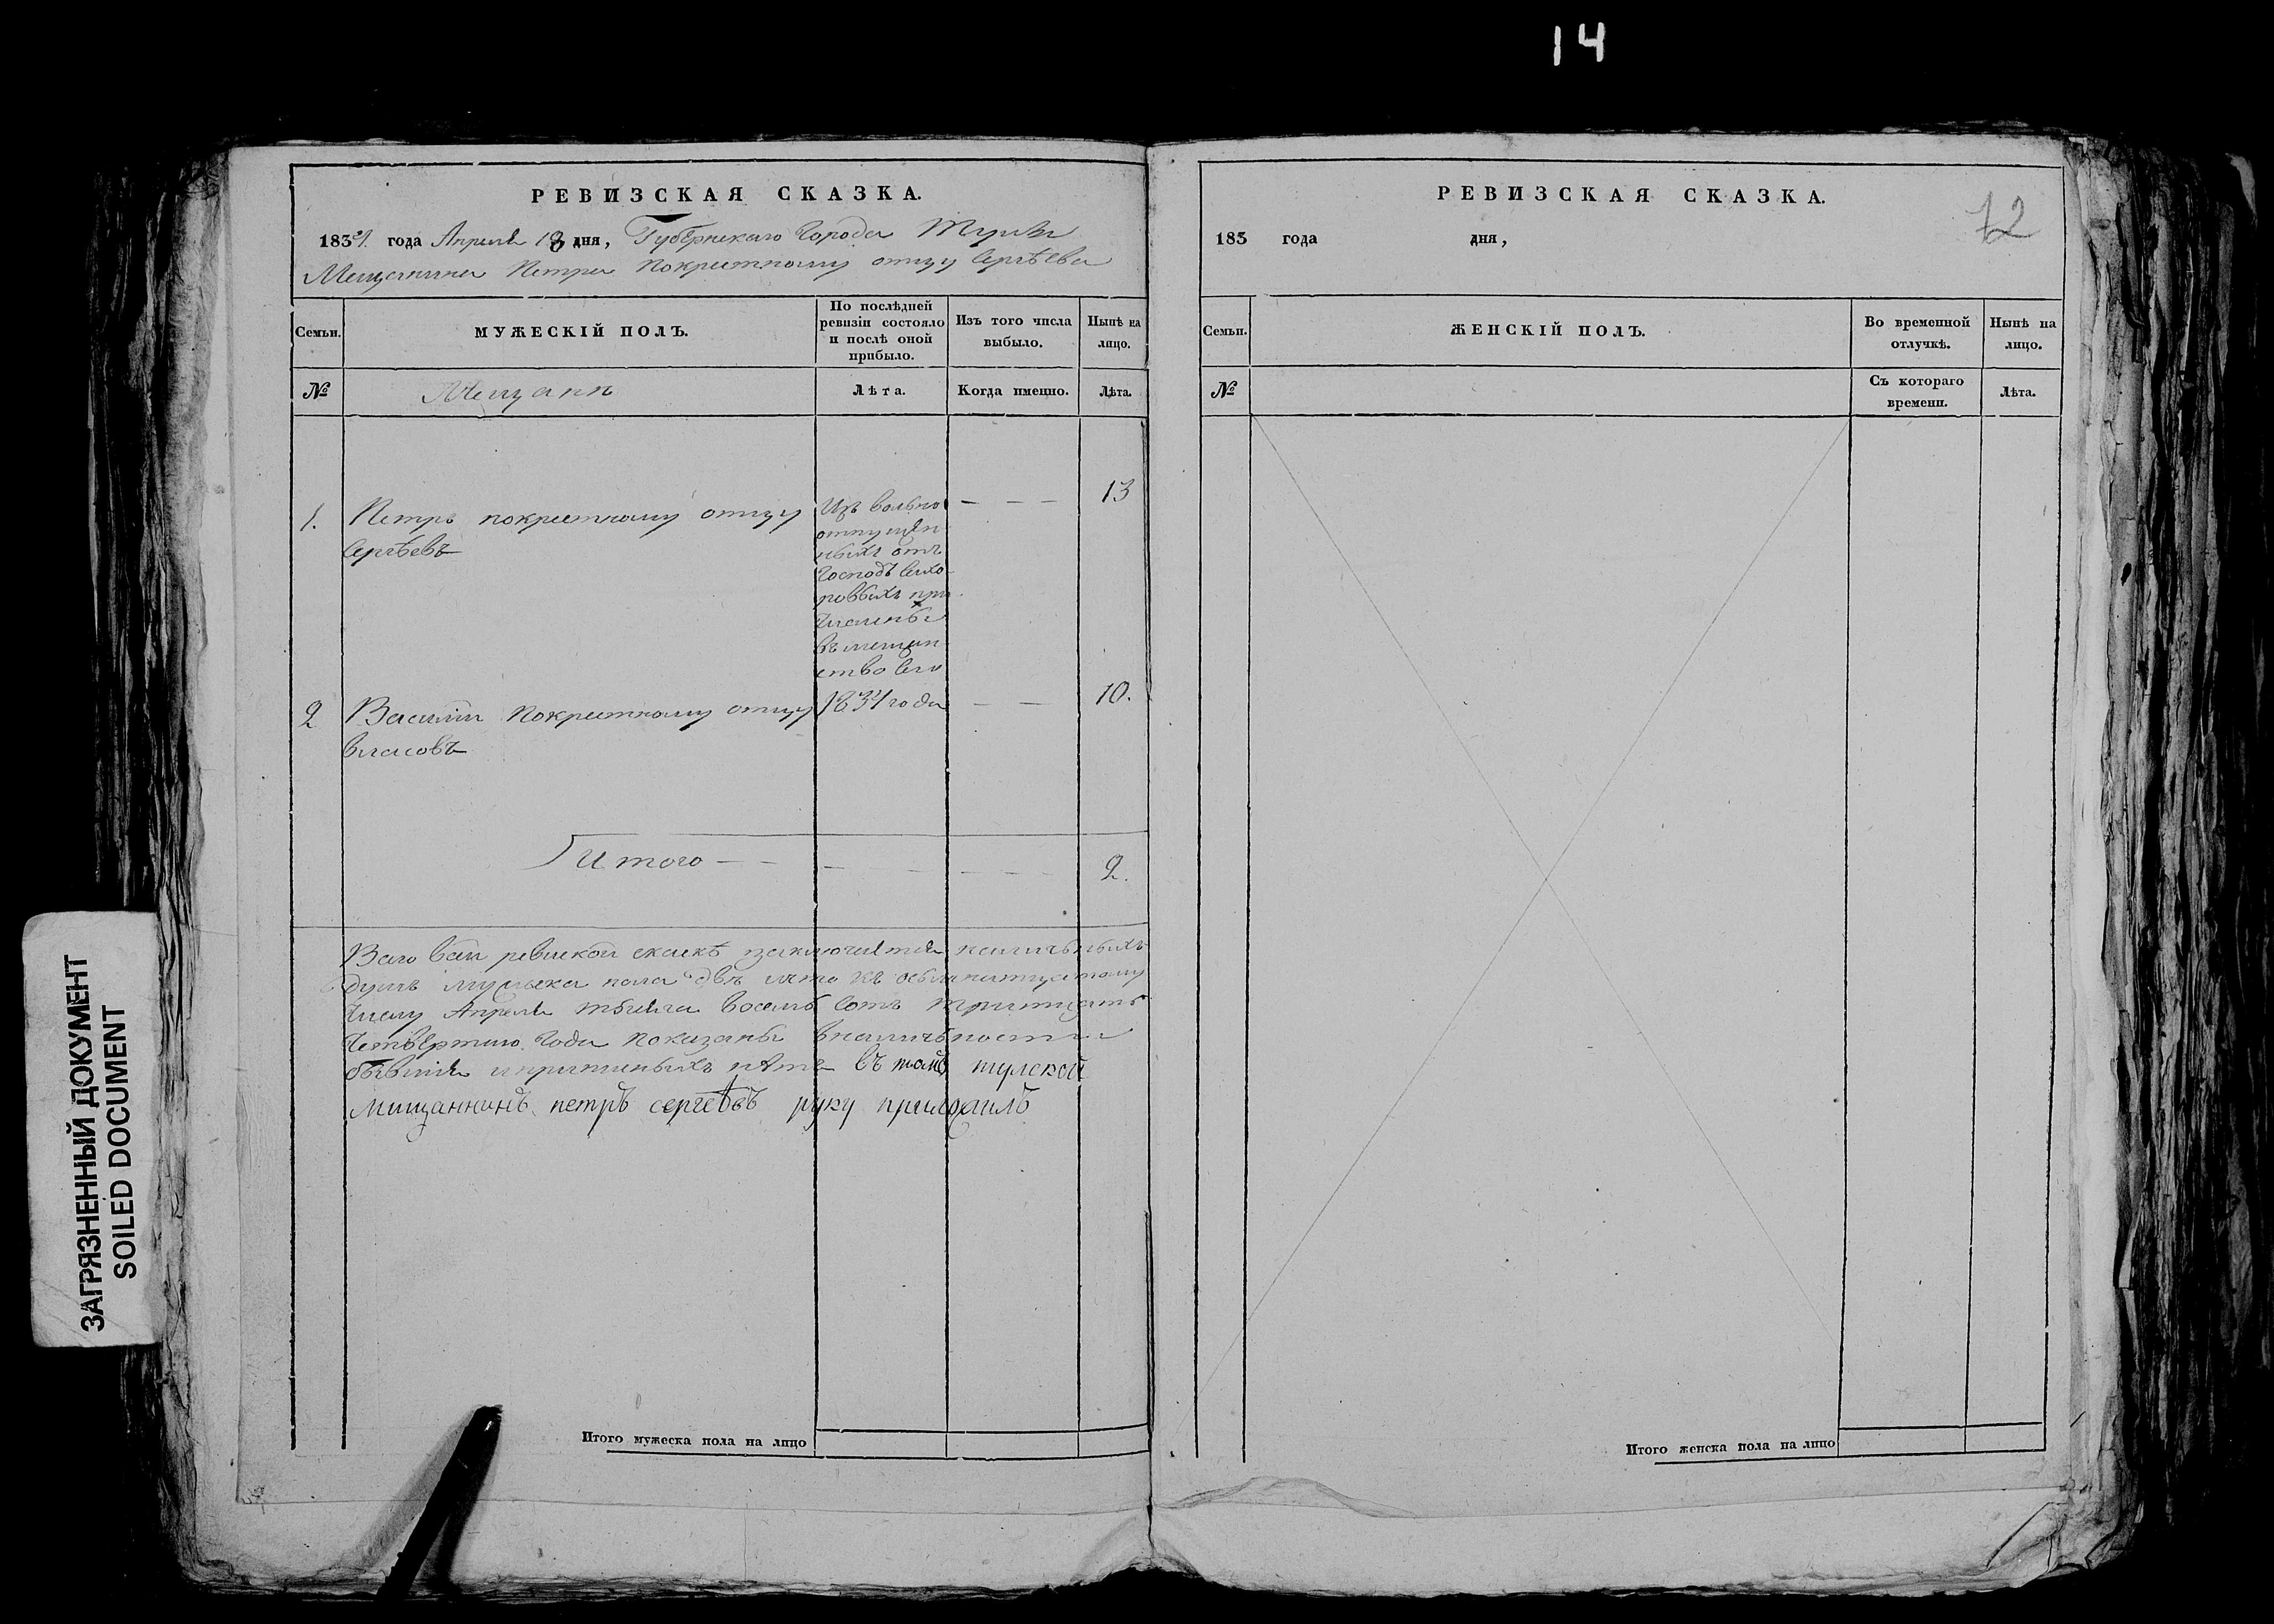 14
РЕВИЗСКАЯ СКАЗКА.
1834 года Апреля 18 дня, Губернскаго Города Тулы
Мещанина Петра покрестному отцу Сергѣева
Семьи.
МУЖЕСКІЙ ПОЛЪ.
По послѣдней ревизіи состояло и послѣ оной прибыло.
Изъ того числа выбыло.
Нынѣ на лицо.
№
Мещанъ
Лѣта.
Когда именно.
Лѣта.
1. Петръ покрестному отцу
Сергѣевъ
Изъ вольно
отпущен
ныхъ отъ
Господъ
при
числены
въ мещан
ство сего
1834 года
— — —
13
2 Василій покрестному отцу
власовъ
— —
10.
Итого — — — — — — — — 2.
ревиской скаскѣ наличьныхъ
душъ мужеска пола двѣ
числу Апреля тысяча восемь сотъ тритцать
Четвертаго Года показаны вналичьности
бывшія и нѣтъ въ томъ тулской
мищаннинъ петръ сергѣевъ руку приложилъ
Итого мужеска пола на лицо
РЕВИЗСКАЯ СКАЗКА.
72
183 года дня,
Семьи.
ЖЕНСКІЙ ПОЛЪ.
Во временной отлучкѣ.
Нынѣ на лицо.
№
Съ котораго времени.
Лѣта.
Итого женска пола на лицо
ЗАГРЯЗНЕННЫЙ ДОКУМЕНТ
SOILED DOCUMENT